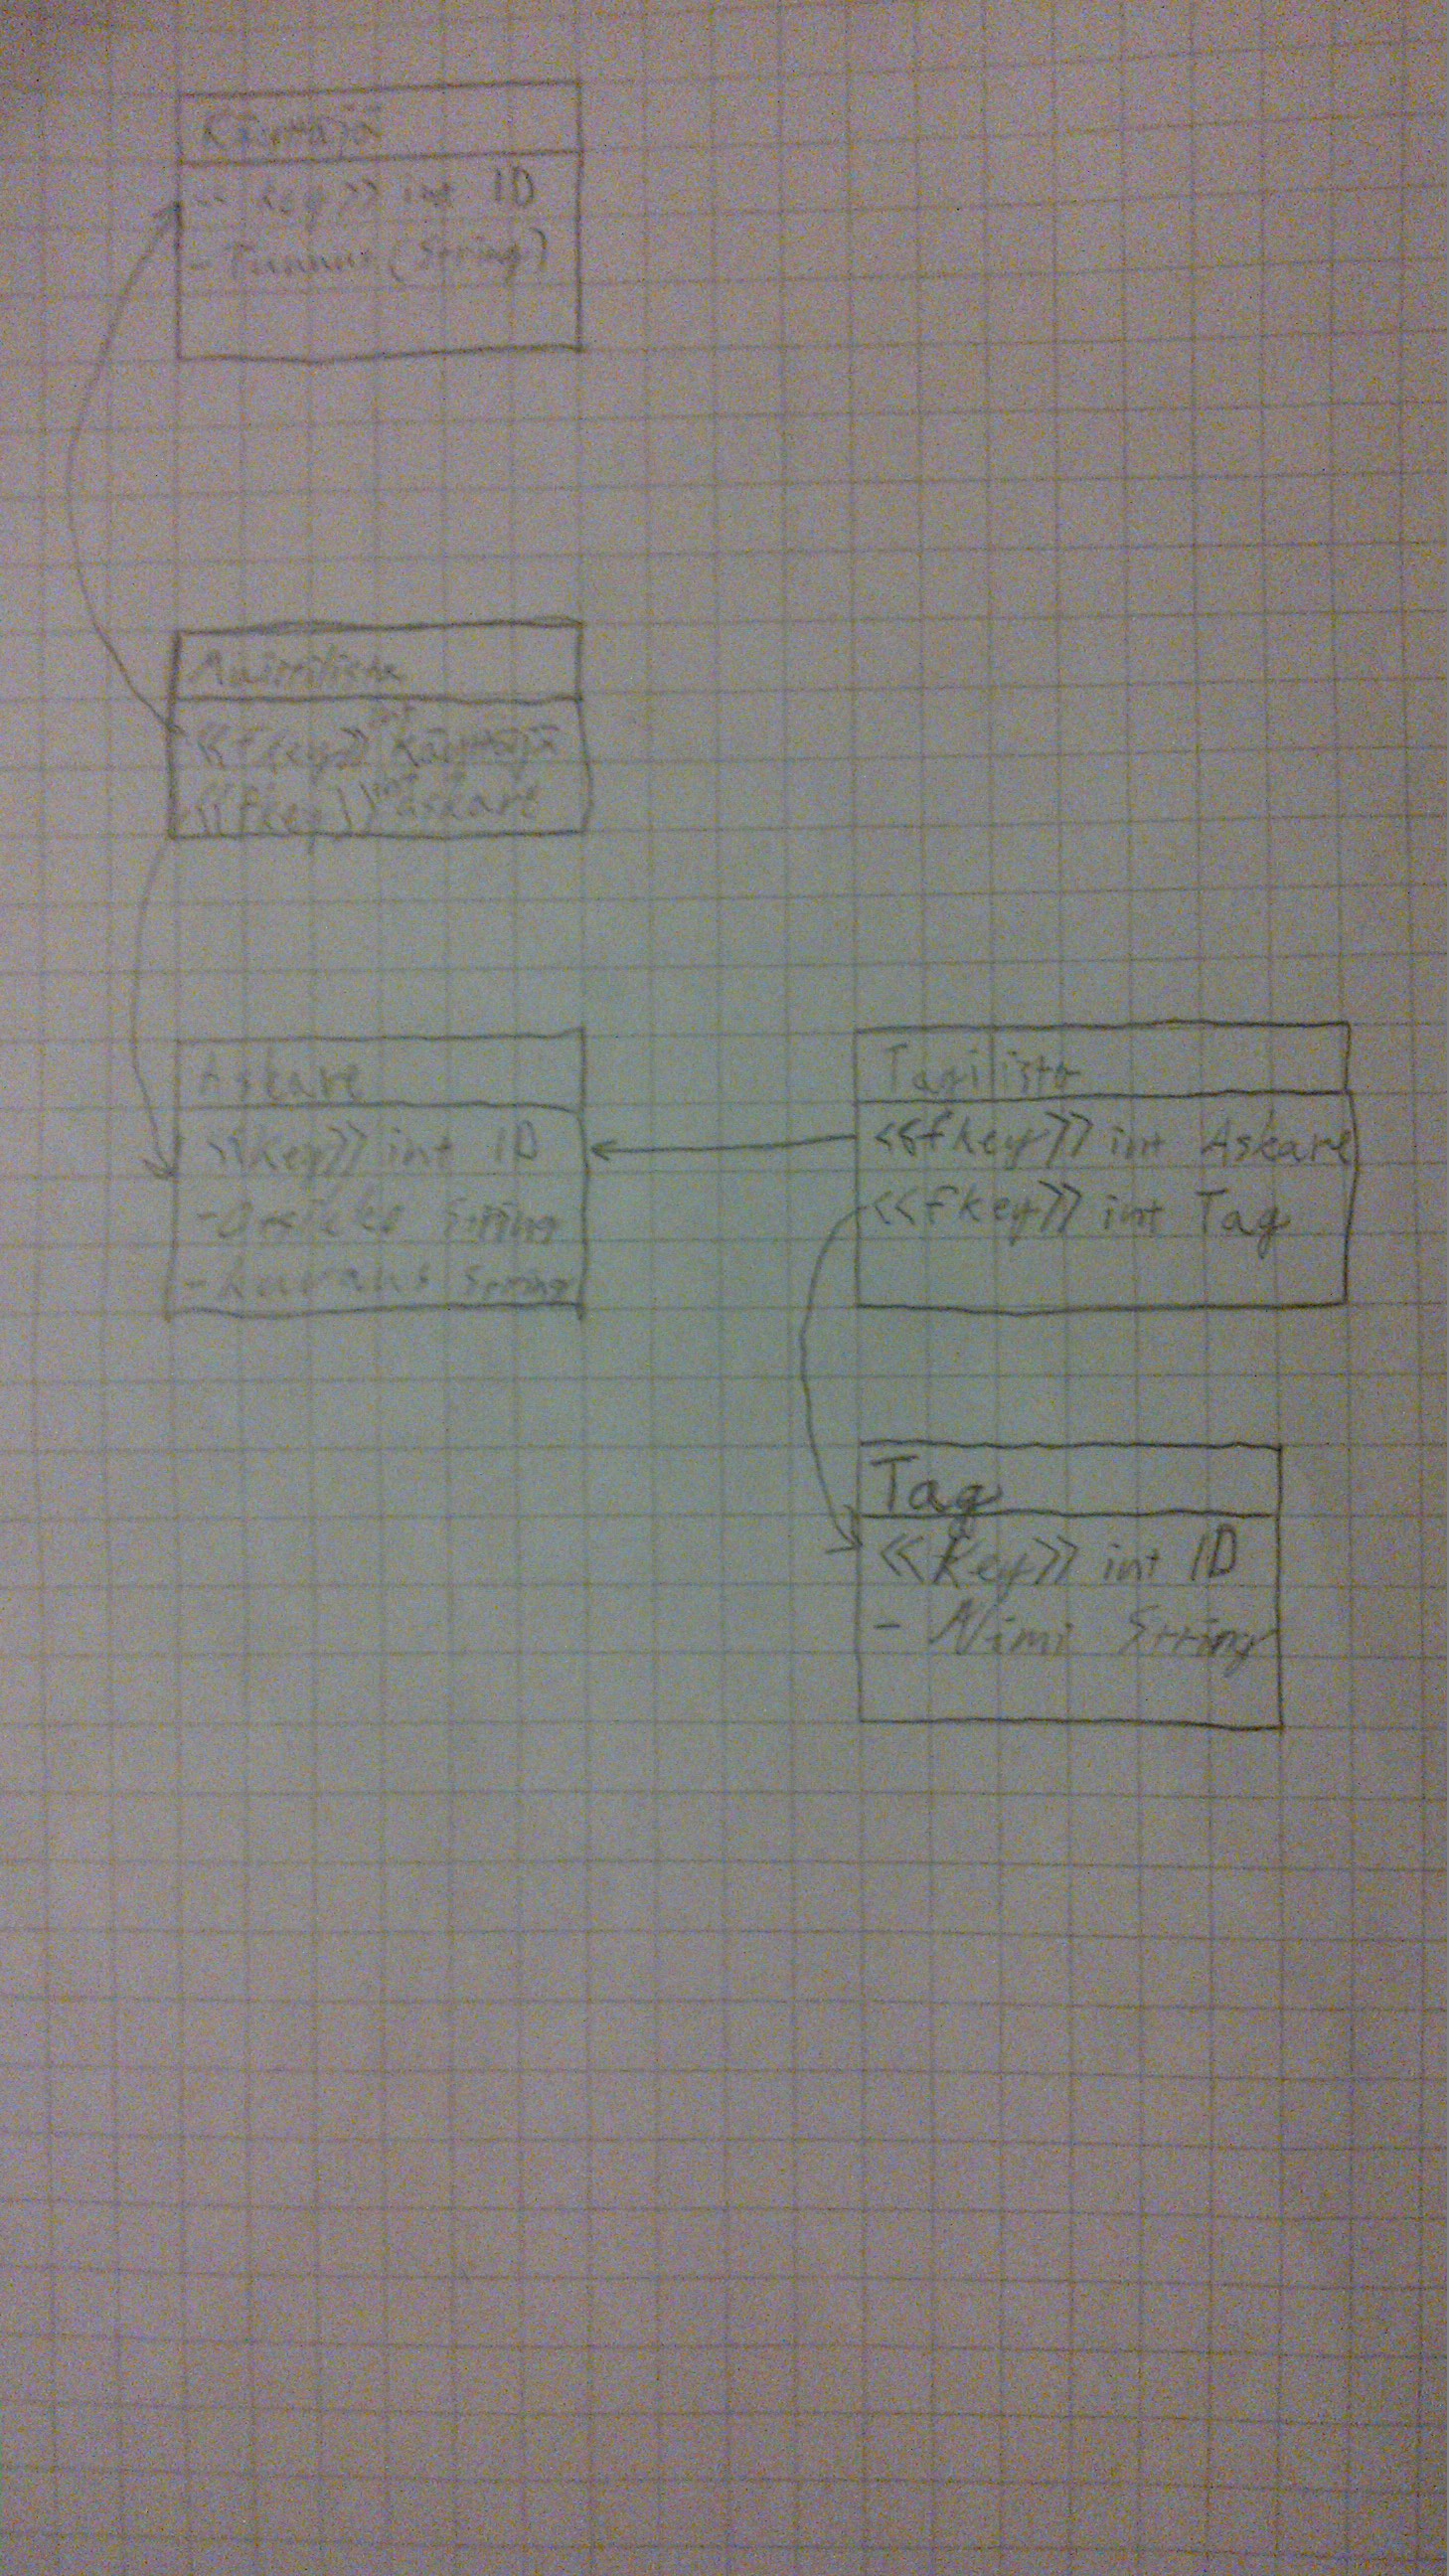 Käyttäjä
<<key>> int ID
- Tunnus (String)
<<fkey>> int Käyttäjä
<<fkey>> int askare
Askare
<<key>> int ID
- Otsikko String
- kuvaus String
Tagilista
<<fkey>> int Askare
<<fkey>> int Tag
Tag
<<key>> int ID
- Nimi String